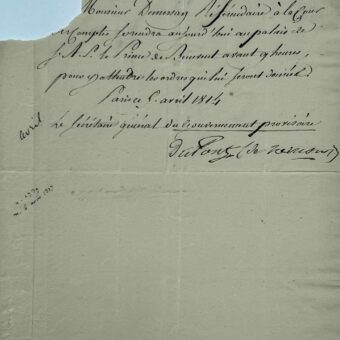 Monsieur Demersay Référendaire à la Cour
des Comptes se rendra aujourd'hui au palais de
S. A. S. le Prince de Benevent avant 9 heures,
pour y attendre les ordres qui lui seront donnés.
Paris ce 5 avril 1814
Le Secrétaire général du Gouvernement provisoire
DuPont (de Nemours)
avril